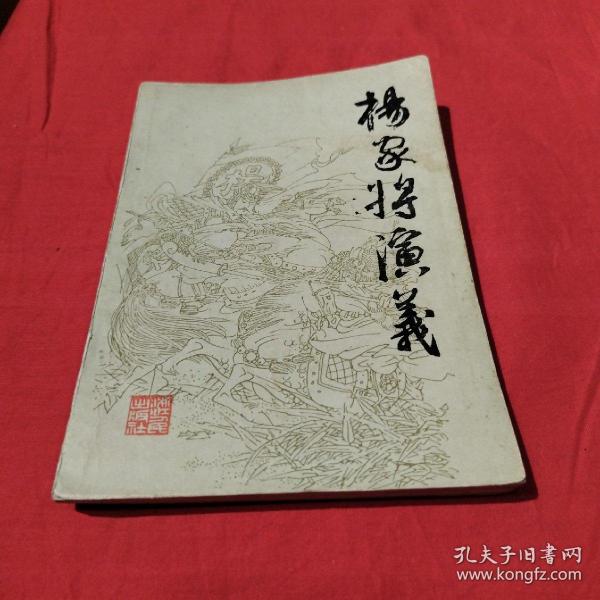 楊家将演義
浙江人民
出版社
孔夫子旧書网
www.kongfz.com